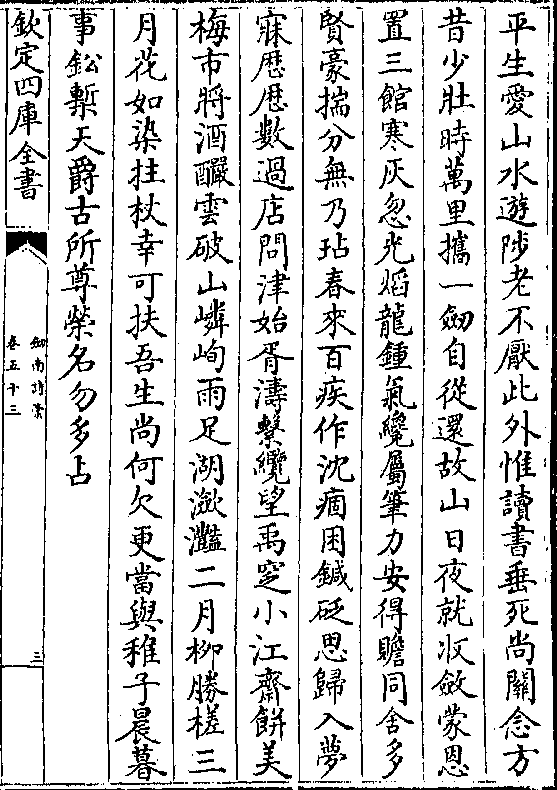 平生愛山水遊陟老不厭此外惟讀書垂死尚關念方
昔少壯時萬里攜一劒自從還故山日夜就收斂蒙恩
置三館寒灰忽光熖龍鍾氣纔屬筆力安得贍同舍多
賢豪揣分無乃玷春來百疾作沈痼困鍼砭思歸入夢
寐歴歴數過店問津始胥濤繫纜望禹窆小江齋餅美
梅市將酒釅雲破山嶙峋雨足湖瀲灩二月柳勝槎三
月花如染拄杖幸可扶吾生尚何欠更當與稚子晨暮
事鈆槧天爵古所尊榮名勿多占
欽定四庫全書
劒南詩稾
卷五十三
三